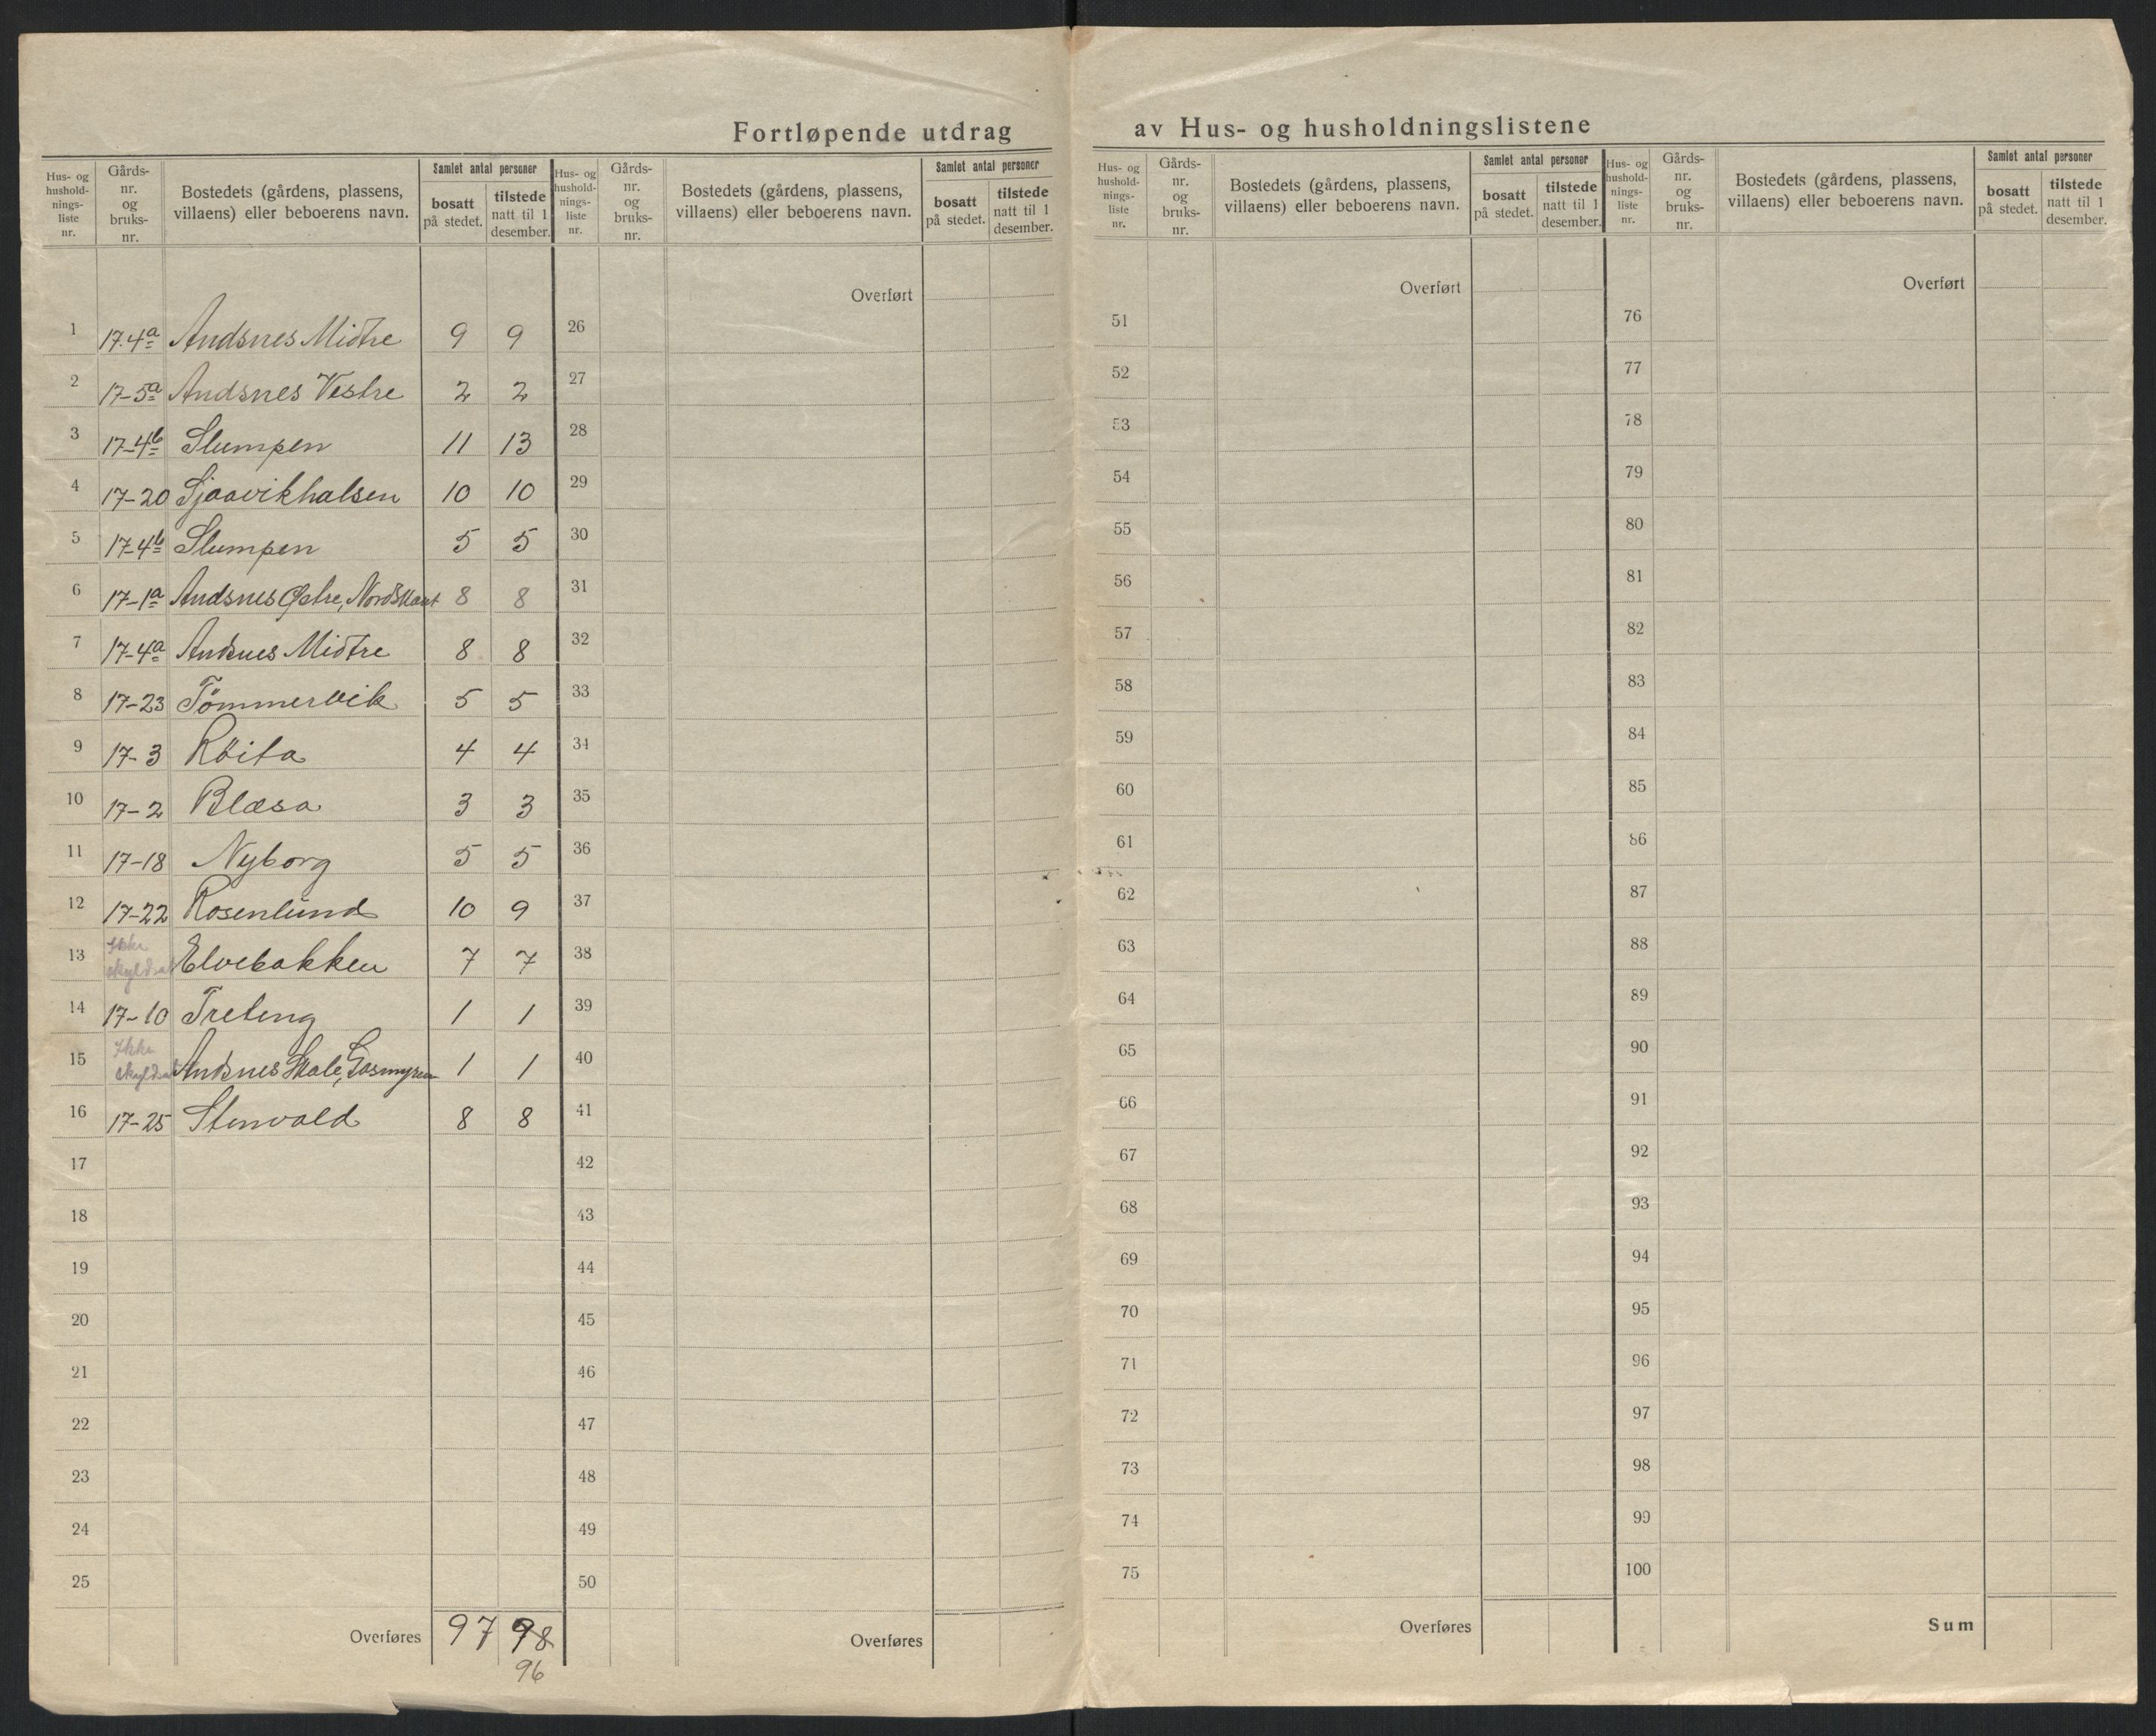 Fortløpende utdrag av Hus- og husholdningslistene
Hus- og hushold-nings-liste nr. | Gårds-nr. og bruks-nr. | Bostedets (gårdens, plassens, villaens) eller beboerens navn. | Samlet antal personer | bosatt på stedet. | tilstede natt til 1 desember.
1 17.4a Andsnes Midtre 9 9
2 17-5a Andsnes Vestre 2 2
3 17-4b Slumpen 11 13
4 17-20 Sjaavikhalsen 10 10
5 17-4b Slumpen 5 5
6 17-1a Andsnes Østre, 8 8
7 17-4a Andsnes Midtre 8 8
8 17-23 Tømmervik 5 5
9 17-3 Røita 4 4
10 17-2 Blæsa 3 3
11 17-18 Nyborg 5 5
12 17-22 Rosenlund 10 9
13 Ikke skyldsat Elvebakken 7 7
14 17-10 Treteng 1 1
15 Ikke skyldsat Andsnes Skole, 1 1
16 17-25 Stenvold 8 8
17
18
19
20
21
22
23
24
25
Overføres 97 98
96
Hus- og hushold-nings-liste nr. | Gårds-nr. og bruks-nr. | Bostedets (gårdens, plassens, villaens) eller beboerens navn. | Samlet antal personer | bosatt på stedet. | tilstede natt til 1 desember.
Overført
26
27
28
29
30
31
32
33
34
35
36
37
38
39
40
41
42
43
44
45
46
47
48
49
50
Overføres
Hus- og hushold-nings-liste nr. | Gårds-nr. og bruks-nr. | Bostedets (gårdens, plassens, villaens) eller beboerens navn. | Samlet antal personer | bosatt på stedet. | tilstede natt til 1 desember.
Overført
51
52
53
54
55
56
57
58
59
60
61
62
63
64
65
66
67
68
69
70
71
72
73
74
75
Overføres
Hus- og hushold-nings-liste nr. | Gårds-nr. og bruks-nr. | Bostedets (gårdens, plassens, villaens) eller beboerens navn. | Samlet antal personer | bosatt på stedet. | tilstede natt til 1 desember.
Overført
76
77
78
79
80
81
82
83
84
85
86
87
88
89
90
91
92
93
94
95
96
97
98
99
100
Sum